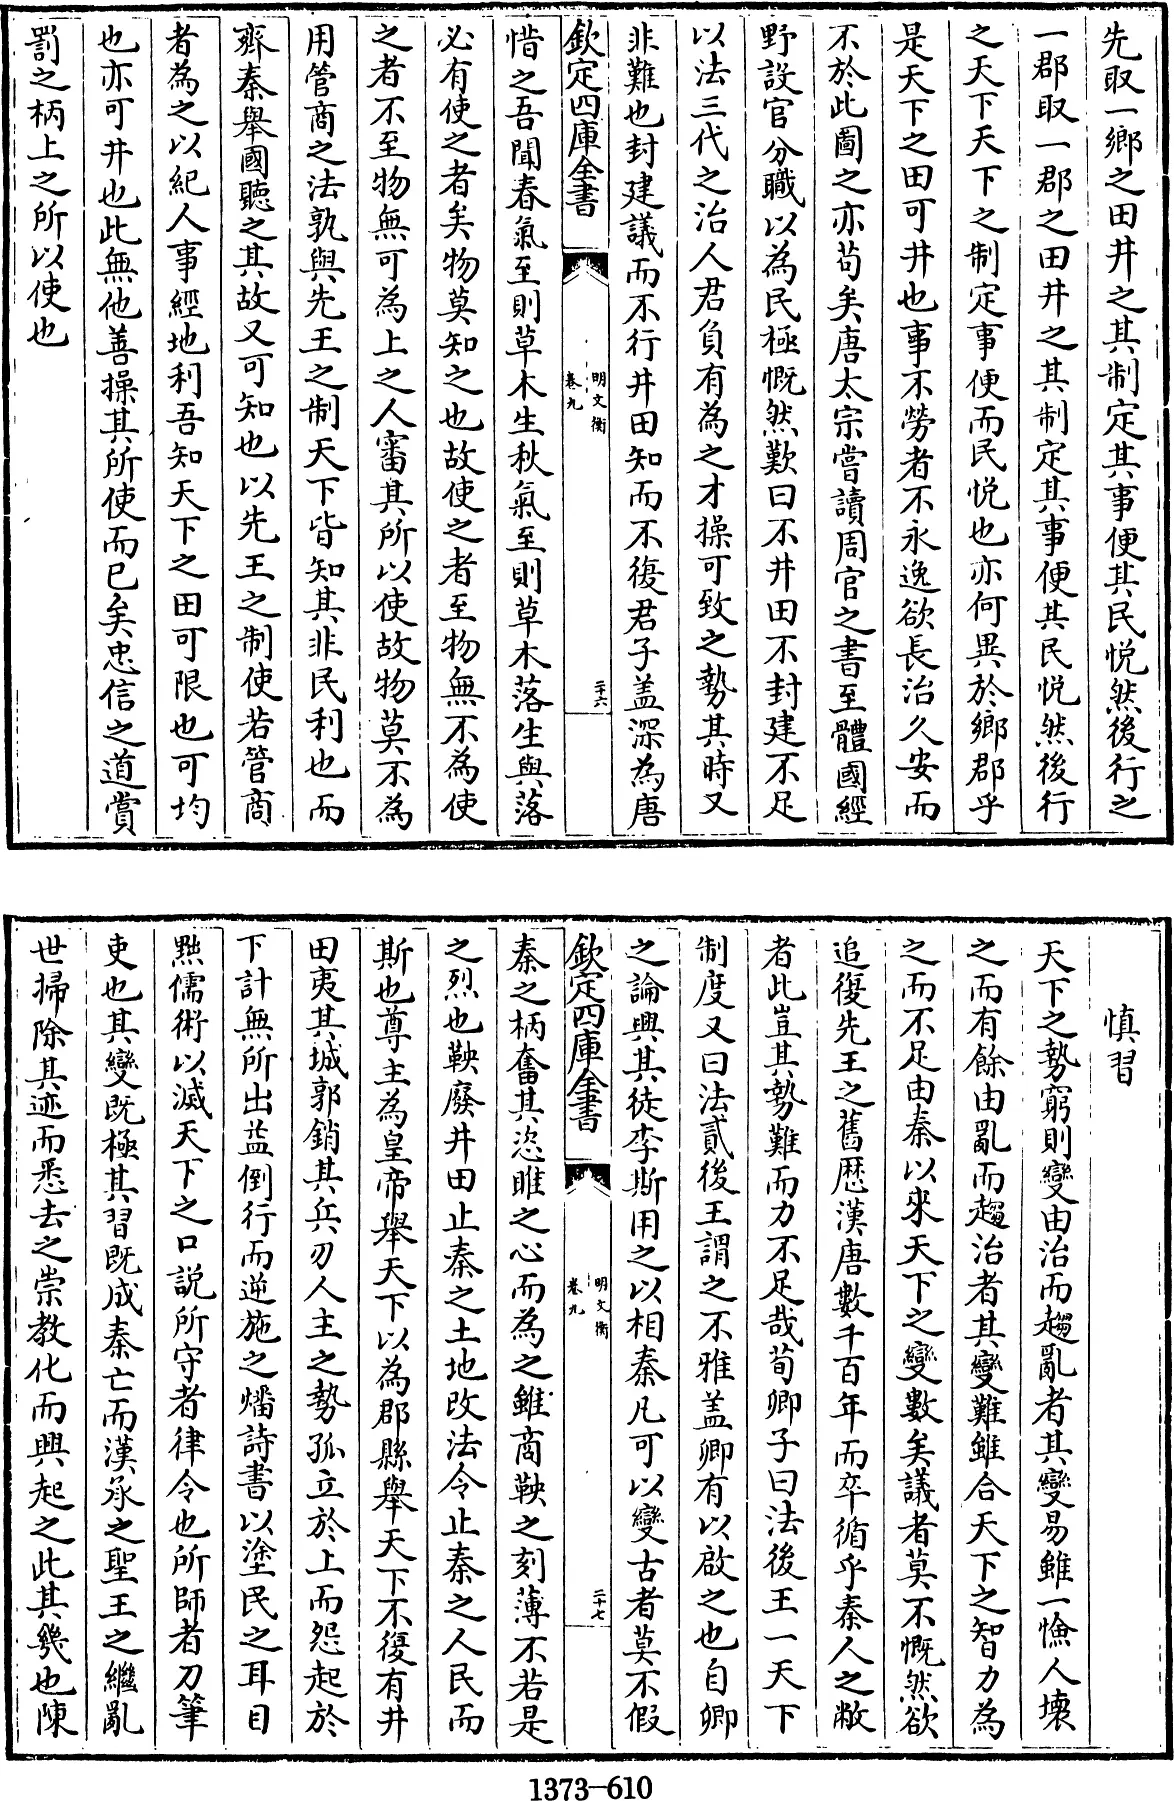 先取一鄉之田井之其制定其事便其民悅然後行之
一郡取一郡之田井之其制定其事便其民悅然後行
之天下天下之制定事便而民悅也亦何異於鄉郡乎
是天下之田可井也事不勞者不永逸欲長治久安而
不於此圖之亦苟矣唐太宗嘗讀周官之書至體國經
野設官分職以為民極慨然歎曰不井田不封建不足
以法三代之治人君負有為之才操可致之勢其時又
非難也封建議而不行井田知而不復君子盖深為唐
欽定四庫全書
明文衡
卷九
二十六
惜之吾聞春氣至則草木生秋氣至則草木落生與落
必有使之者矣物莫知之也故使之者至物無不為使
之者不至物無可為上之人審其所以使故物莫不為
用管商之法孰與先王之制天下皆知其非民利也而
齊秦舉國聽之其故又可知也以先王之制使若管商
者為之以紀人事經地利吾知天下之田可限也可均
也亦可井也此無他善操其所使而已矣忠信之道賞
罰之柄上之所以使也
慎習
天下之勢窮則變由治而趨亂者其變易雖一憸人壞
之而有餘由亂而趨治者其變難雖合天下之智力為
之而不足由秦以來天下之變數矣議者莫不慨然欲
追復先王之舊歷漢唐數千百年而卒循乎秦人之敝
者此豈其勢難而力不足哉荀卿子曰法後王一天下
制度又曰法貳後王謂之不雅盖卿有以啟之也自卿
之論興其徒李斯用之以相秦凡可以變古者莫不假
欽定四庫全書
明文衡
卷九
二十七
秦之柄奮其恣睢之心而為之雖商鞅之刻薄不若是
之烈也鞅廢井田止秦之土地改法令止秦之人民而
斯也尊主為皇帝舉天下以為郡縣舉天下不復有井
田夷其城郭銷其兵刃人主之勢孤立於上而怨起於
下計無所出益倒行而逆施之燔詩書以塗民之耳目
黜儒術以滅天下之口說所守者律令也所師者刀筆
吏也其變既極其習既成秦亡而漢承之聖王之繼亂
世掃除其迹而悉去之崇教化而興起之此其幾也陳
1373—610